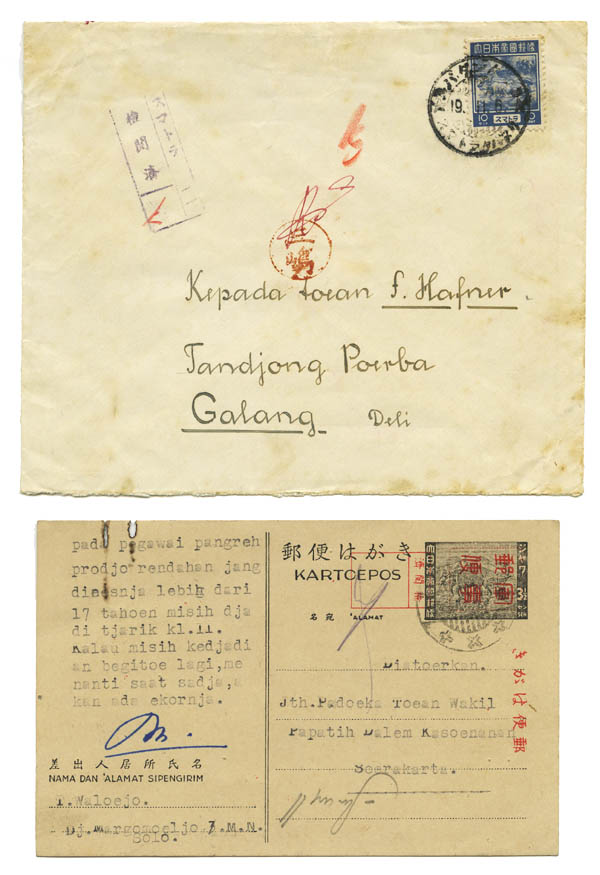 大日本帝国郵便
10 スマトラ 10
19. 11. 6
スマトラ
検閲済
Kepada toean F. Hafner.
Tandjong Poerba
Galang Deli
pada pegawai pangreh
prodjo rendahan jang
dieesnja lebih dari
17 tahoen misih dja
di tjarik kl.II.
Kalau misih kedjadi
an begitoe lagi,me
nanti saat sadja,a
kan ada ekornja.
差出人居所氏名
NAMA DAN 'ALAMAT SIPENGIRIM
T.Waloejo.
Dj.Margomoeljo 7.M.N.
Solo.
郵便はがき
KARTOEPOS
名宛 'ALAMAT
大日本帝国郵便
ジャワ
3½
軍事
郵便
郵便はがき
Diatoerkan.
Jth.Padoeka Toean Wakil
Papatih Dalem Kasoenanan
Soerakarta.